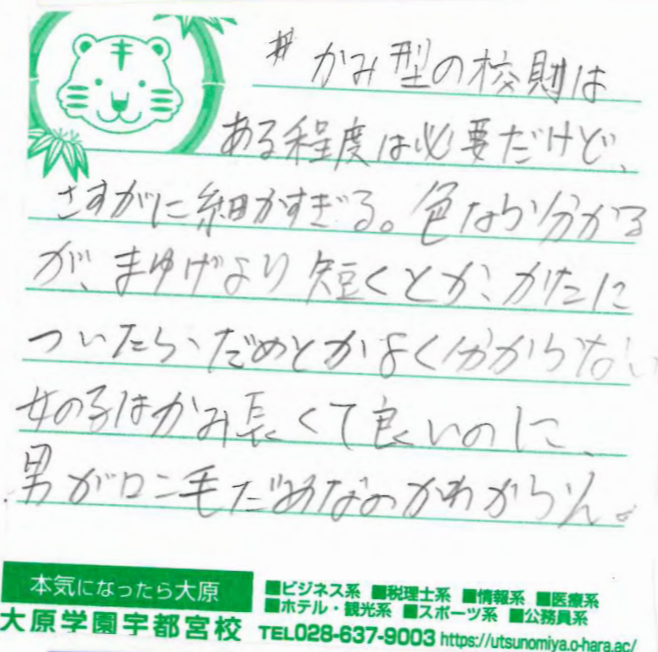 #かみ型の校則は
ある程度は必要だけど、
さすがに細かすぎる。色なら分かる
が、まゆげより短くとか、かたに
ついたら、だめとかよく分からない
女の子はかみ長くて良いのに、
男がロン毛だめなのかわからん。
本気になったら大原
■ビジネス系 ■税理士系 ■情報系 ■医療系
■ホテル・観光系 ■スポーツ系 ■公務員系
大原学園宇都宮校 TEL028-637-9003 https://utsunomiya.o-hara.ac/